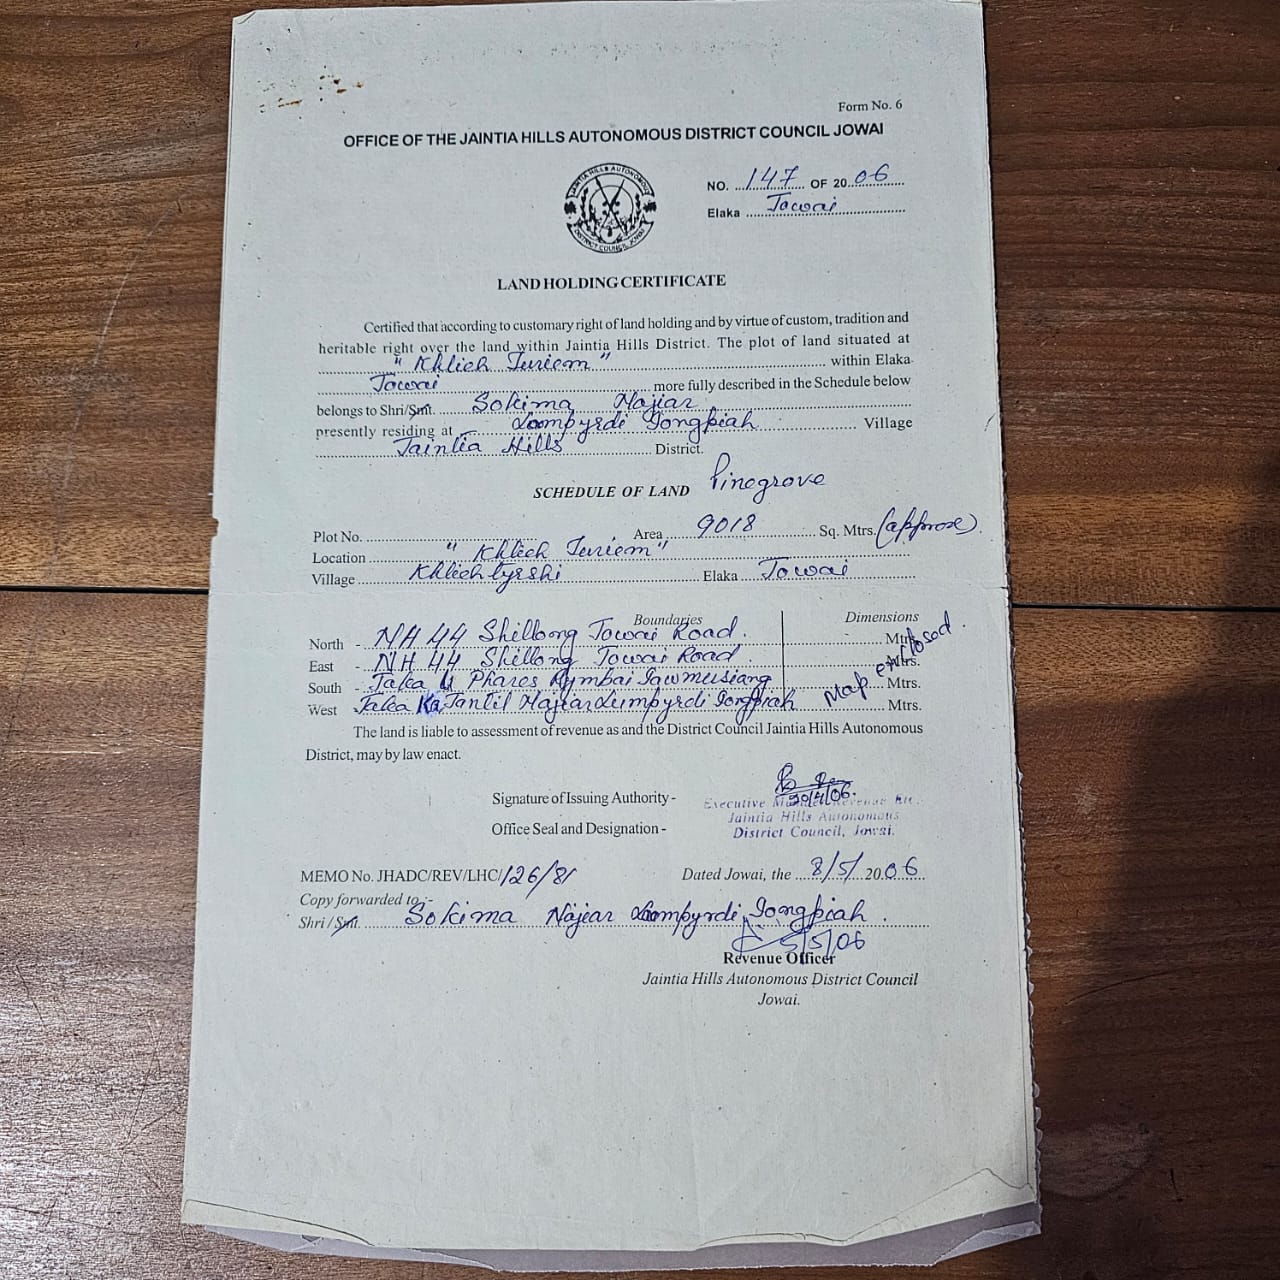 Form No. 6
OFFICE OF THE JAINTIA HILLS AUTONOMOUS DISTRICT COUNCIL JOWAI
JAINTIA HILLS AUTONOMOUS
DISTRICT COUNCIL JOWAI
NO. 147 OF 2006
Elaka Jowai
LAND HOLDING CERTIFICATE
Certified that according to customary right of land holding and by virtue of custom, tradition and
heritable right over the land within Jaintia Hills District. The plot of land situated at
" Khlieh Turiem " within Elaka
Jowai more fully described in the Schedule below
belongs to Shri/Smt. Sokima Najiar
presently residing at Loompyrdi Iongpiah Village
Jaintia Hills District.
SCHEDULE OF LAND Pinegrove
Plot No. Area 9018 Sq. Mtrs. (approx)
Location " Khlieh Turiem "
Village Khliehtyrshi Elaka Jowai
Boundaries Dimensions
North - NH 44 Shillong Jowai Road. Mtrs.
East - NH 44 Shillong Jowai Road. Mtrs.
South - Jaka U Phares Rymbai Iawmusiang Mtrs.
West Jaka Ka Tantil Najiar Lumpyrdi Iongpiah Mtrs.
Map enclosed.
The land is liable to assessment of revenue as and the District Council Jaintia Hills Autonomous
District, may by law enact.
Signature of Issuing Authority -
20/4/06.
Executive Member Revenue Etc.
Jaintia Hills Autonomous
Office Seal and Designation -
District Council, Jowai.
MEMO No. JHADC/REV/LHC/126/81 Dated Jowai, the 8/5/ 2006
Copy forwarded to :-
Shri / Smt. Sokima Najiar Loompyrdi Iongpiah.
5/5/06
Revenue Officer
Jaintia Hills Autonomous District Council
Jowai.